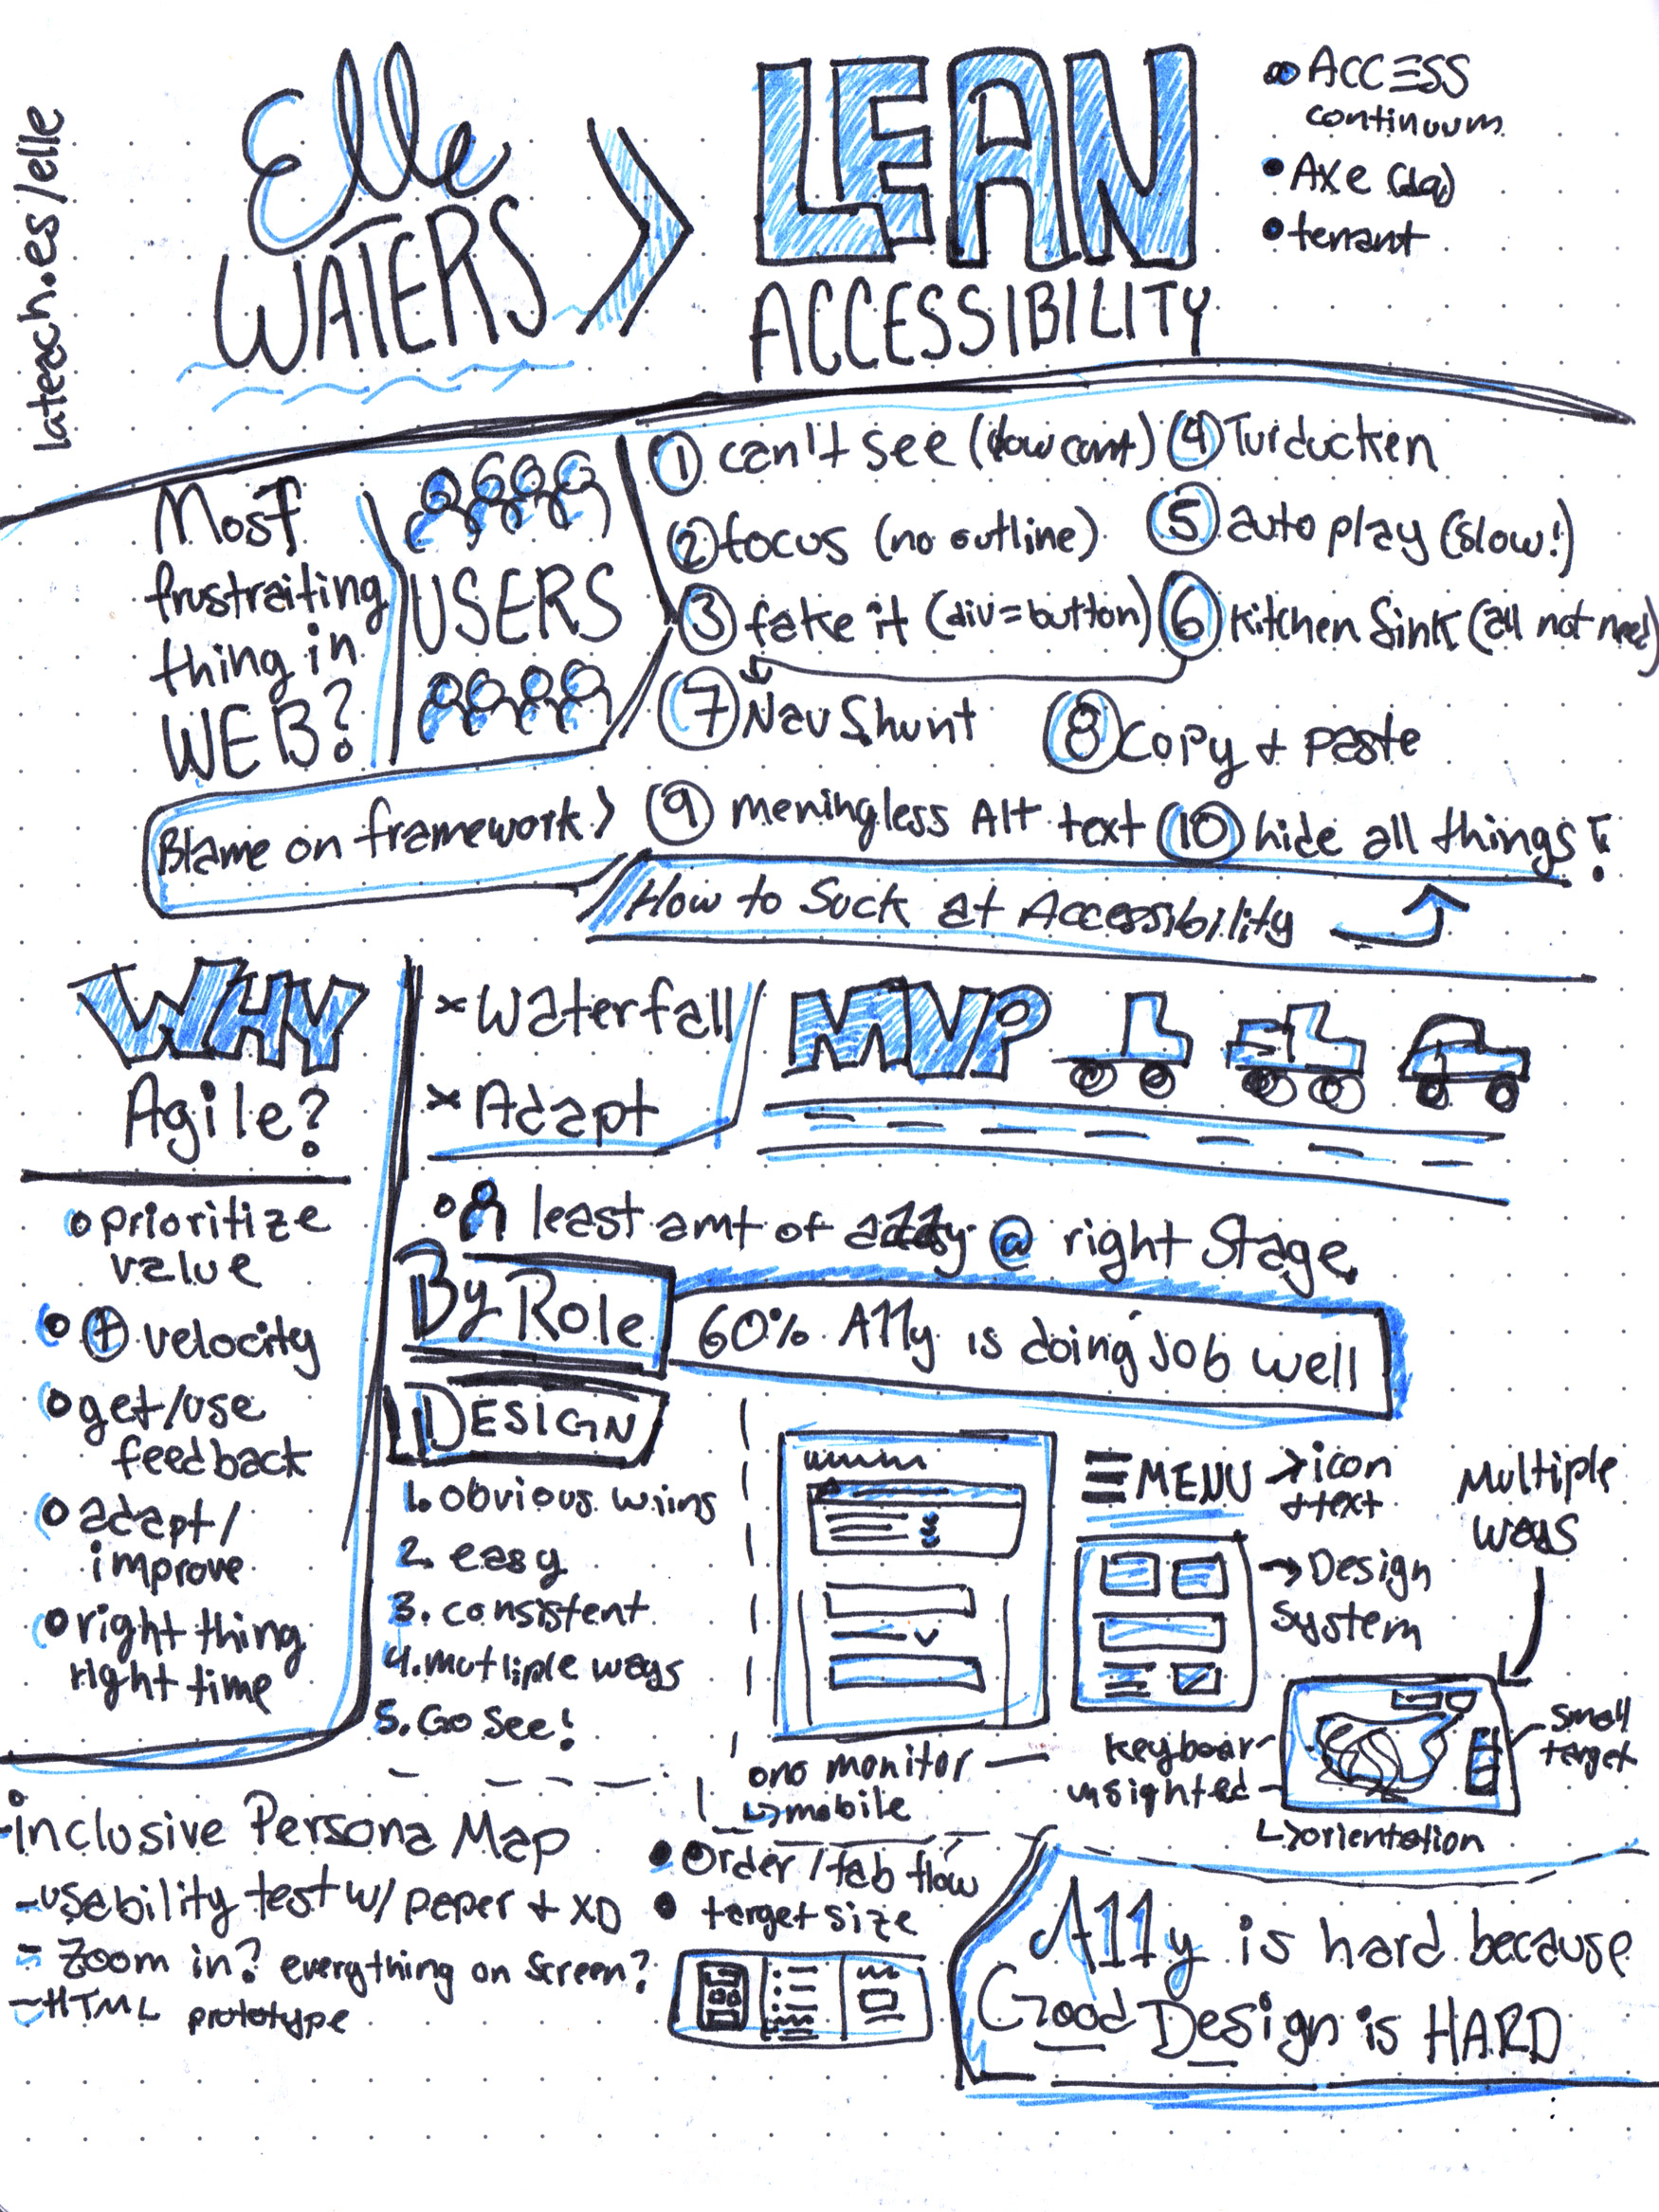 lateach.es/elle
Elle
WATERS
LEAN
ACCESSIBILITY
ACCESS
continuum
Axe (da)
tenant
Most
frustraiting
thing in
WEB?
USERS
1 can't see (low cont)
2 focus (no outline)
3 fake it (div=button)
4 Turducken
5 auto play (slow!)
6 Kitchen Sink (all not need)
7 Nav Shunt
8 Copy + paste
Blame on framework >
9 meningless Alt text
10 hide all things!
How to Suck at Accessibility
WHY
Agile?
prioritize
value
+ velocity
get/use
feedback
adapt/
improve
right thing
right time
x Waterfall
x Adapt
MVP
least amt of a11y @ right Stage
By Role
60% A11y is doing job well
DESIGN
1. obvious wiins
2. easy
3. consistent
4. mutliple ways
5. Go See!
MENU
icon
+text
Design
System
Multiple
ways
monitor
mobile
Keyboar
unsighted
small
target
orientation
inclusive Persona Map
- usability test w/ paper + XD
- Zoom in? everything on Screen?
- HTML prototype
Order/tab flow
target size
A11y is hard because
Good Design is HARD